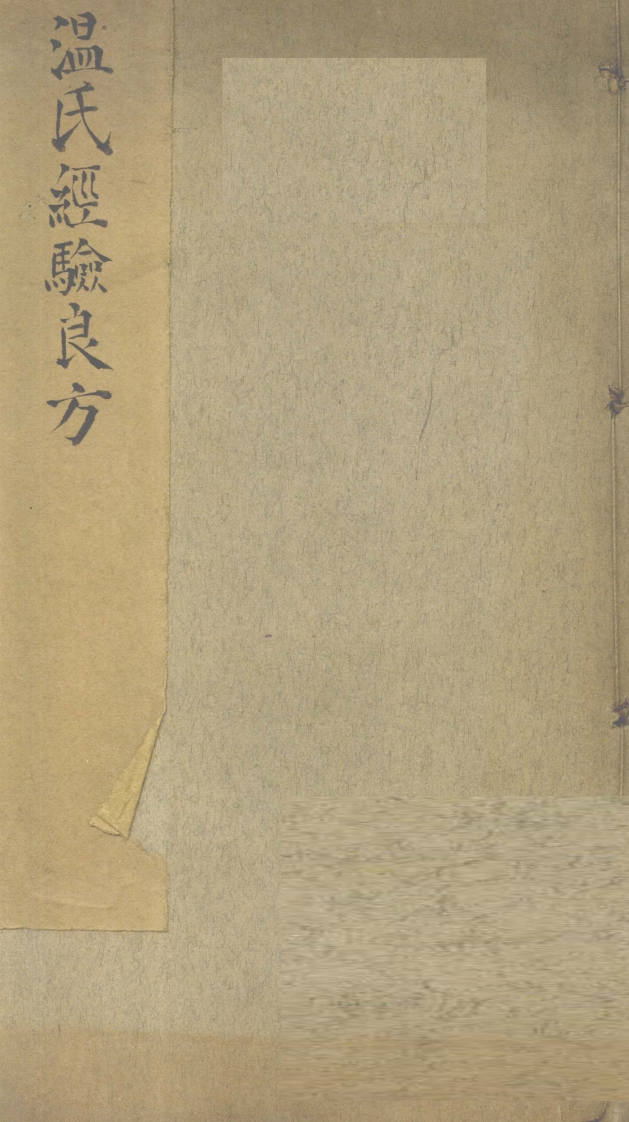 温氏經驗良方